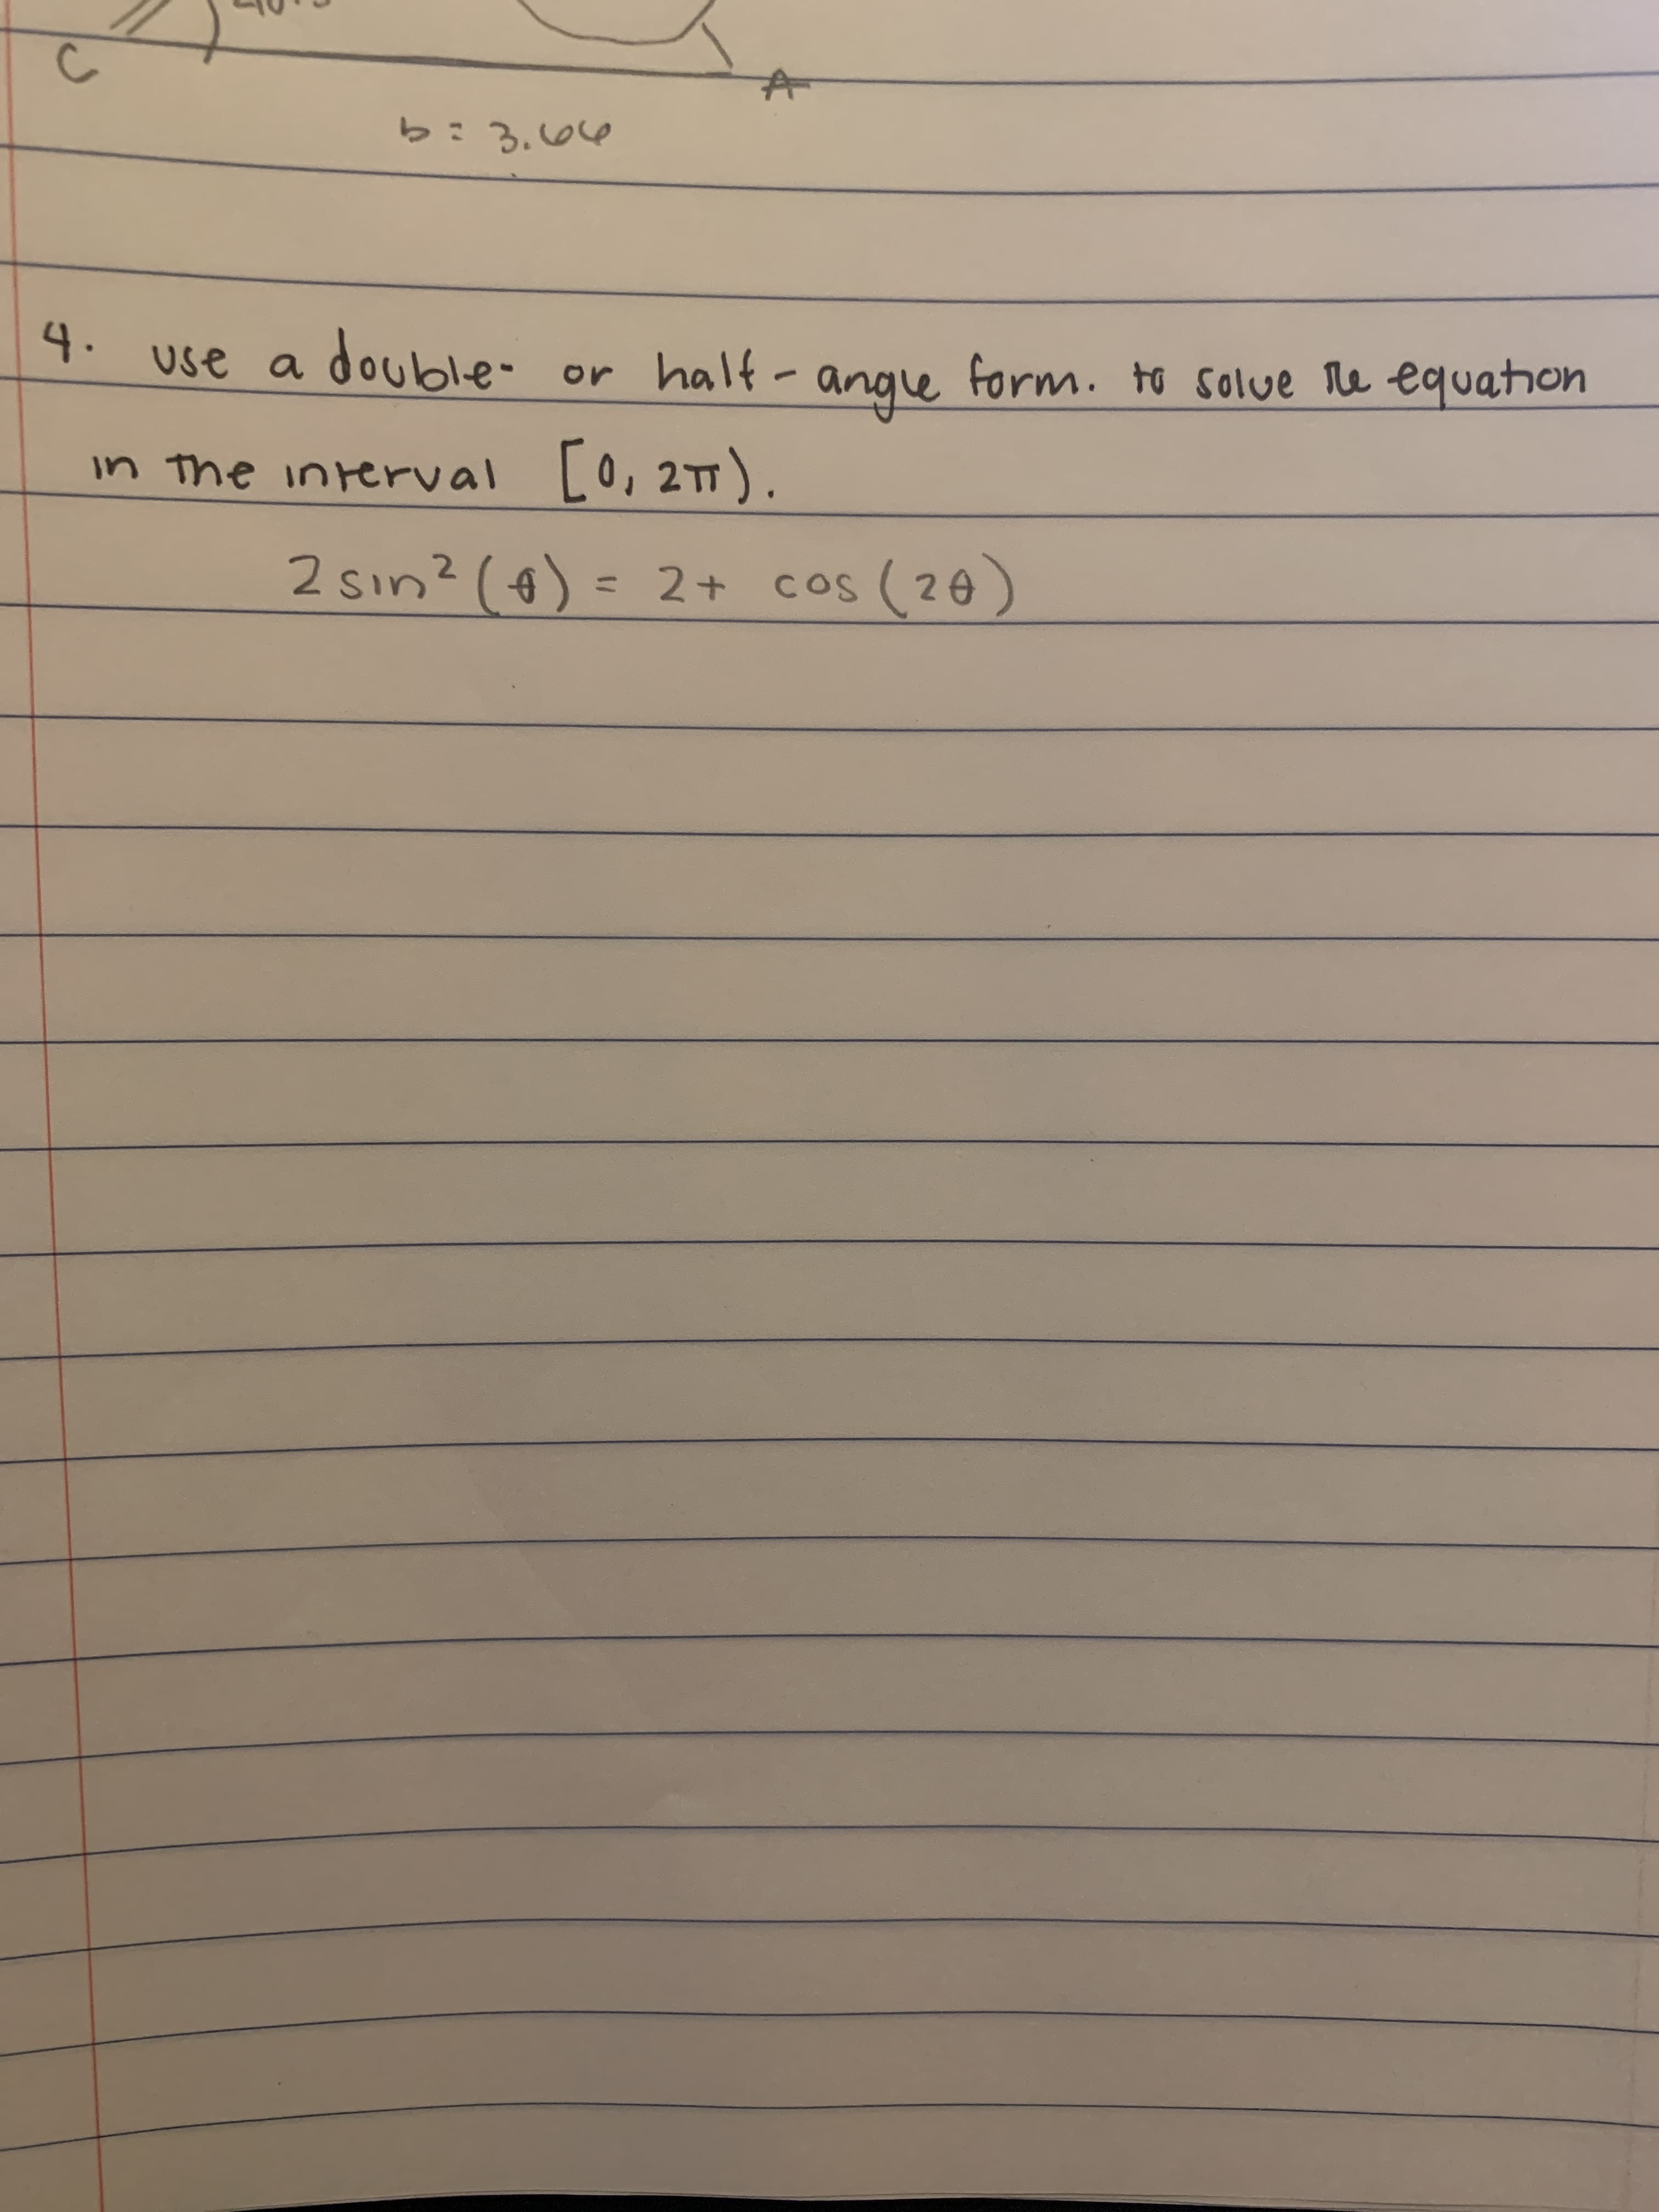 C
A
b = 3.66
4. use a double- or half-angle form. to solve the equation
in the interval [0, 2π).
2 sin² (θ) = 2 + cos (2θ)